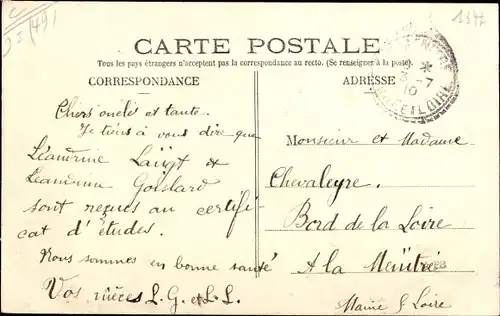 (49)
1347
CARTE POSTALE
Tous les pays étrangers n'acceptent pas la correspondance au recto. (Se renseigner à la poste).
CORRESPONDANCE
Chers oncle et tante.
Je tiens à vous dire que
Léandrine Laügt &
Leandrine Goislard
sont reçues au certifi
cat d'études.
Nous sommes en bonne santé
Vos nièces L. G. et L. L.
ADRESSE
Monsieur et Madame
Chevaleyre.
Bord de la Loire
A la Menitré
Maine & Loire